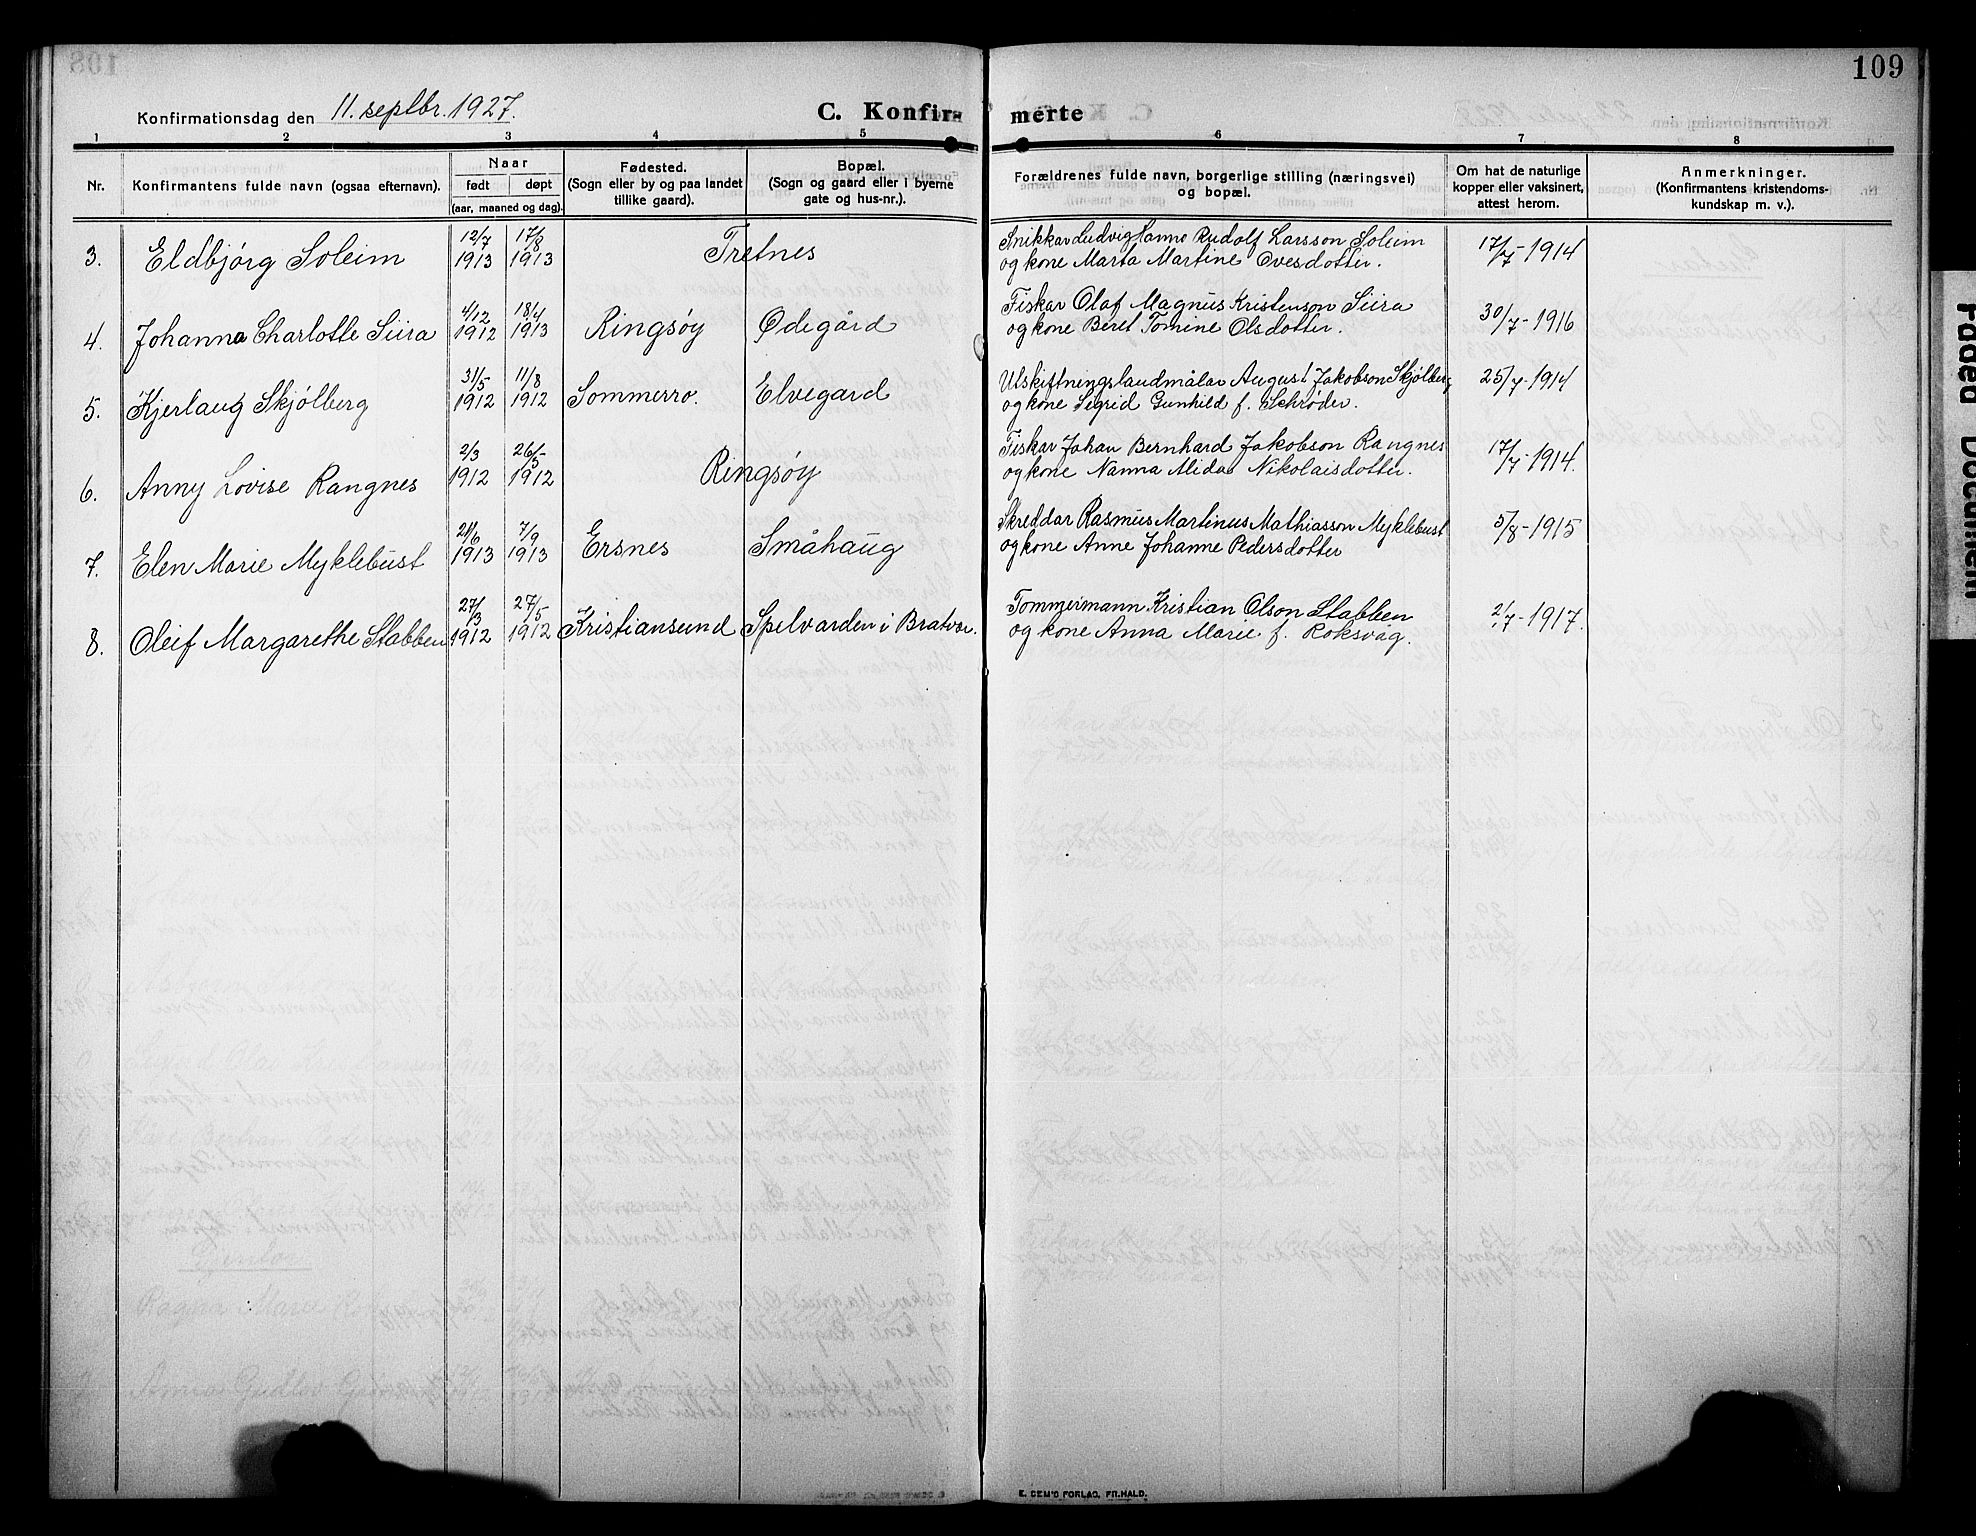 109
Konfirmationsdag den 11. septbr. 1927.
C. Konfirmerte
1 2 3 4 5 6 7 8
Nr.
Konfirmantens fulde navn (ogsaa efternavn).
Naar
født døpt
(aar, maaned og dag).
Fødested.
(Sogn eller by og paa landet
tillike gaard).
Bopæl.
(Sogn og gaard eller i byerne
gate og hus-nr.).
Forældrenes fulde navn, borgerlige stilling (næringsvei)
og bopæl.
Om hat de naturlige
kopper eller vaksinert,
attest herom.
Anmerkninger.
(Konfirmantens kristendoms-
kundskap m. v.).
3. Eldbjørg Soleim 12/7 1913 17/8 1913 Tretnes
Snikkar Ludvig Hanno Rudolf Larsson Soleim
og kone Marta Martine Ovesdotter. 17/7-1914
4. Johanna Charlotte Siira 4/12 1912 18/4 1913 Ringsøy Ødegård
Fiskar Olaf Magnus Kristenson Siira
og kone Beret Tomine Olsdotter. 30/7-1916
5. Kjerlaug Skjølberg 31/5 1912 11/8 1912 Sommerro. Elvegard
Utskiftningslandmålar August Jakobson Skjølberg
og kone Sigrid Gunhild f. Schrøder. 25/7-1914
6. Anny Lovise Rangnes 2/3 1912 26/5- 1912 Ringsøy
Fiskar Johan Bernhard Jakobson Rangnes
og kone Nanna Alida Nikolaisdotter. 17/7-1914.
7. Elen Marie Myklebust 21/6 1913 7/9 1913 Ersnes Småhaug
Skreddar Rasmus Martinus Mathiasson Myklebust
og kone Anne Johanne Pedersdotter 5/8-1915
8. Oleif Margarethe Stabben 27/3 1912 27/5 1912 Kristiansund Spelvarden i Bratvær.
Tommermann Kristian Olson Stabben
og kone Anna Marie f. Roksvåg. 2/7-1917.
E. SEM'S FORLAG, FR.HALD.
Faded Document